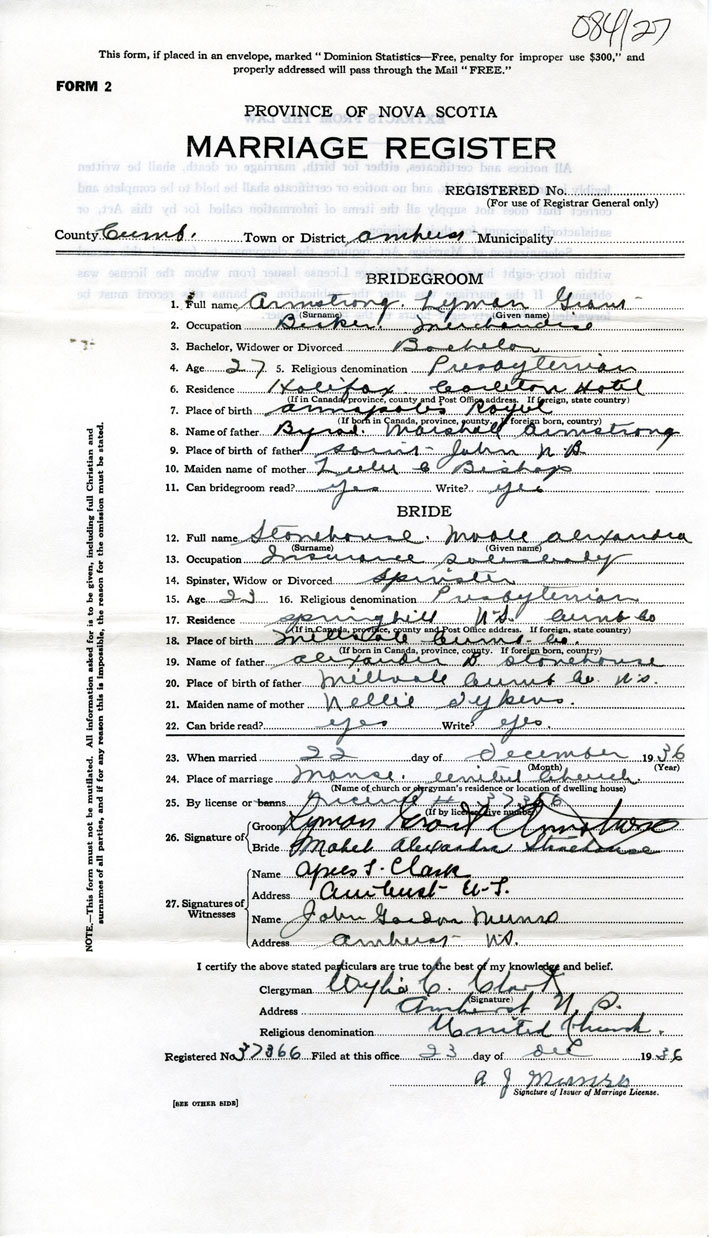 084/27
This form, if placed in an envelope, marked "Dominion Statistics—Free, penalty for improper use $300," and
properly addressed will pass through the Mail "FREE."
FORM 2
PROVINCE OF NOVA SCOTIA
MARRIAGE REGISTER
REGISTERED No.
(For use of Registrar General only)
County Cumb. Town or District Amherst Municipality
BRIDEGROOM
1. Full name Armstrong. Lyman Grant
(Surname) (Given name)
2. Occupation Merchandise
3. Bachelor, Widower or Divorced Bachelor
4. Age 27 5. Religious denomination Presbyterian
6. Residence Halifax. Carleton Hotel
(If in Canada, province, county and Post Office address. If foreign, state country)
7. Place of birth Annapolis Royal
(If born in Canada, province, county. If foreign born, country)
8. Name of father Byrd. Marshall Armstrong
9. Place of birth of father Saint John N B
10. Maiden name of mother Lulu E Bishop
11. Can bridegroom read? Yes Write? Yes
BRIDE
12. Full name Stonehouse. Alexandra
(Surname) (Given name)
13. Occupation Insurance
14. Spinster, Widow or Divorced Spinster
15. Age 23 16. Religious denomination Presbyterian
17. Residence Springhill N.S. Cumb Co
(If in Canada, province, county and Post Office address. If foreign, state country)
18. Place of birth Millvale Cumb. Co.
(If born in Canada, province, county. If foreign born, country)
19. Name of father Alexander D Stonehouse
20. Place of birth of father Millvale Cumb Co. N.S.
21. Maiden name of mother Nellie Sykens.
22. Can bride read? yes Write? yes.
23. When married 22 day of December 1936
(Month) (Year)
24. Place of marriage Manse. United Church.
(Name of church or clergyman's residence or location of dwelling house)
25. By license or banns License # 37366
(If by license give number)
26. Signature of
Groom Lyman Grant Armstrong
Bride Mabel Alexandra Stonehouse
27. Signatures of Witnesses
Name Agnes S. Clark
Address Amherst N.S.
Name John Gordon Munro
Address Amherst N.S.
I certify the above stated particulars are true to the best of my knowledge and belief.
Clergyman Wylie C. Clark
(Signature)
Address Amherst N.S.
Religious denomination United Church.
Registered No. 37366 Filed at this office 23 day of Dec 1936
A J Munro
Signature of Issuer of Marriage License.
[SEE OTHER SIDE]
NOTE.—This form must not be mutilated. All information asked for is to be given, including full Christian and
surnames of all parties, and if for any reason this is impossible, the reason for the omission must be stated.